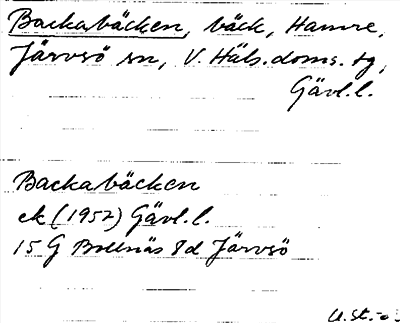 Backabäcken, bäck, Hamre,
Järvsö sn, V. Häls. doms. tg,
Gävl.l.
Backabäcken
ek (1952) Gävl.l.
15 G Bollnäs 8d Järvsö
U.St.-